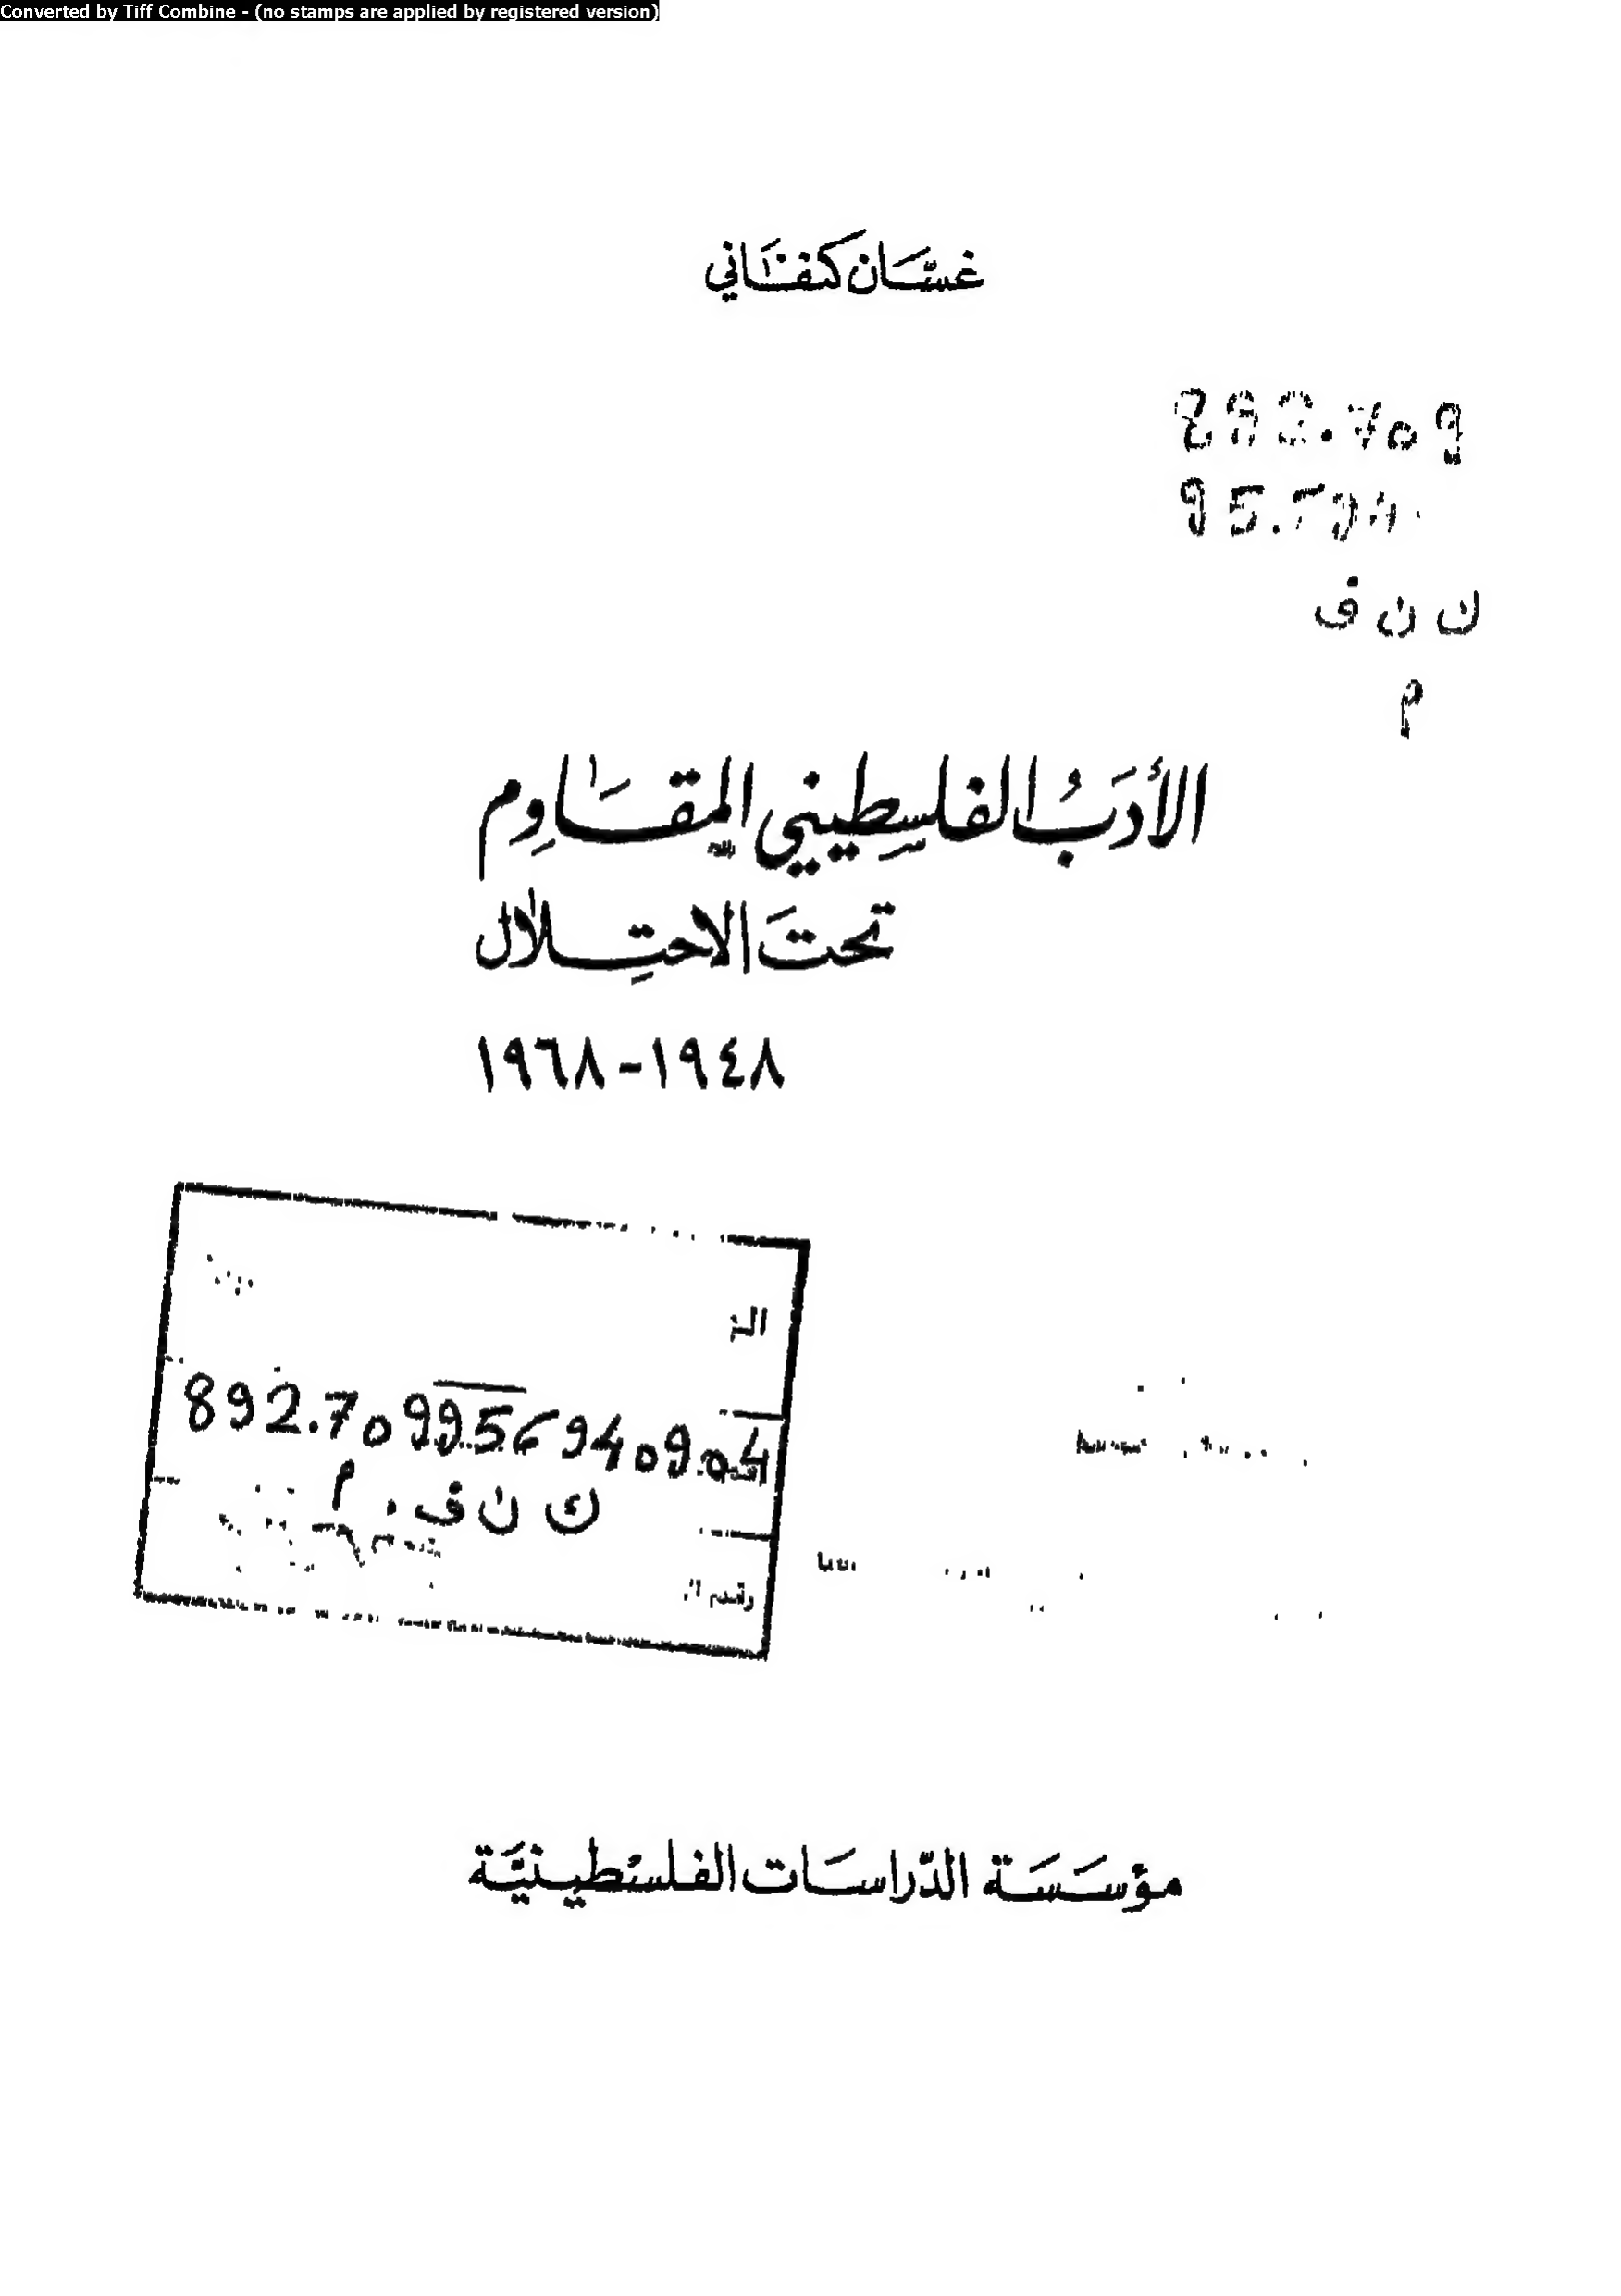 Converted by Tiff Combine - (no stamps are applied by registered version)
غسان كنفاني
892.709
ك ن ف
م
الأدب الفلسطيني المقاوم
تحت الاحتلال
١٩٤٨-١٩٦٨
892.709956940904
ك ن ف . م
مؤسسة الدراسات الفلسطينية